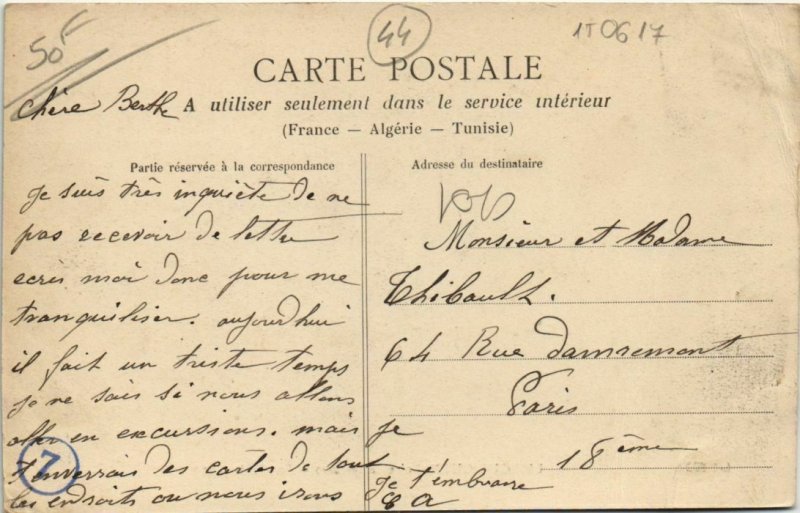 50F
44
1T0617
CARTE POSTALE
chère Berthe
A utiliser seulement dans le service intérieur
(France — Algérie — Tunisie)
Partie réservée à la correspondance
je suis très inquiète de ne
pas recevoir de lettre
ecris moi donc pour me
tranquiliser. aujourdhui
il fait un triste temps
je ne sais si nous allons
aller en excursions. mais je
t'enverrais des cartes de tout
les endroits ou nous irons
je t'embrasse
Adresse du destinataire
Monsieur et Madame
Thibault.
64 Rue damremont
Paris
18ème
7